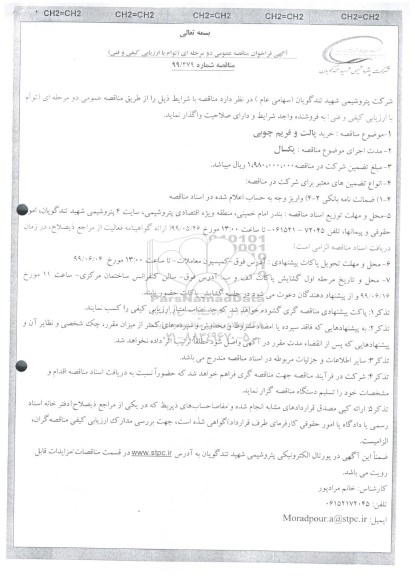 CH2=CH2 CH2=CH2 CH2=CH2 CH2=CH2 CH2=CH2
بسمه تعالی
آگهی فراخوان مناقصه عمومی دو مرحله ای (توأم با ارزیابی کیفی و فنی)
مناقصه شماره ۹۹/۳۷۹
شرکت پتروشیمی شهید تندگویان (سهامی عام) در نظر دارد مناقصه با شرایط ذیل را از طریق مناقصه عمومی دو مرحله ای (توأم
با ارزیابی کیفی و فنی) به فروشنده واجد شرایط و دارای صلاحیت واگذار نماید.
۱-موضوع مناقصه : خرید پالت و فریم چوبی
۲-مدت اجرای موضوع مناقصه : یکسال
۳-مبلغ تضمین شرکت در مناقصه ۱،۹۸۰،۰۰۰،۰۰۰ ریال میباشد.
۴-انواع تضمین های معتبر برای شرکت در مناقصه:
۴-۱) ضمانت نامه بانکی ۴-۲) واریز وجه به حساب اعلام شده در اسناد مناقصه
۵-محل و مهلت توزیع اسناد مناقصه : بندر امام خمینی، منطقه ویژه اقتصادی پتروشیمی، سایت ۴ پتروشیمی شهید تندگویان، امور
حقوقی و پیمانها، تلفن ۷۲۰۴۵ -۰۶۱۵۲۱ تا ساعت ۱۳:۰۰ مورخ ۹۹/۰۵/۲۶ (ارائه گواهینامه فعالیت از مراجع ذیصلاح، در زمان
دریافت اسناد مناقصه الزامی است)
۶-محل و مهلت تحویل پاکات پیشنهادی : آدرس فوق -کمیسیون معاملات- تا ساعت ۱۳:۰۰ مورخ ۹۹/۰۶/۰۴
۷- محل و تاریخ مرحله اول گشایش پاکات الف و ب: آدرس فوق- سالن کنفرانس ساختمان مرکزی- ساعت ۱۱ مورخ
۹۹/۰۶/۱۶ و از پیشنهاد دهندگان دعوت می شود در جلسه گشایش پاکات حضور یابند.
تذکر۱: پاکت پیشنهادی مناقصه گری گشوده خواهد شد که حد نصاب امتیاز ارزیابی کیفی را کسب نمایند.
تذکر۲: به پیشنهادهایی که فاقد سپرده یا امضاء، مشروط و مخدوش و سپرده های کمتر از میزان مقرر، چک شخصی و نظایر آن و
پیشنهادهایی که پس از انقضاء مدت مقرر در آگهی واصل شود مطلقا ترتیب اثر داده نخواهد شد.
تذکر۳: سایر اطلاعات و جزئیات مربوطه در اسناد مناقصه مندرج می باشد.
تذکر۴: شرکت در فرآیند مناقصه جهت مناقصه گری فراهم خواهد شد که حضوراً نسبت به دریافت اسناد مناقصه اقدام و
مشخصات خود را تسلیم دستگاه مناقصه گزار نماید.
تذکر۵: ارائه کپی مصدق قراردادهای مشابه انجام شده و مفاصاحساب‌های ذیربط که در یکی از مراجع ذیصلاح(دفتر خانه اسناد
رسمی یا دادگاه یا امور حقوقی کارفرمای طرف قرارداد)گواهی شده است، جهت بررسی مدارک ارزیابی کیفی مناقصه‌گران،
الزامیست.
ضمناً این آگهی در پورتال الکترونیکی پتروشیمی شهید تندگویان به آدرس www.stpc.ir در قسمت مناقصات/مزایدات قابل
رویت می باشد.
کارشناس: خانم مرادپور
تلفن: ۰۶۱۵۲۱۷۲۰۴۵
ایمیل: Moradpour.a@stpc.ir
ParsNamadData
CH2=CH2 CH2=CH2 CH2=CH2 CH2=CH2 CH2=CH2